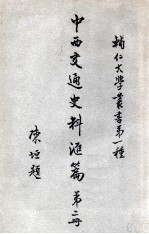 輔仁大學叢書第一種
中西交通史料滙篇第二冊
陳垣題